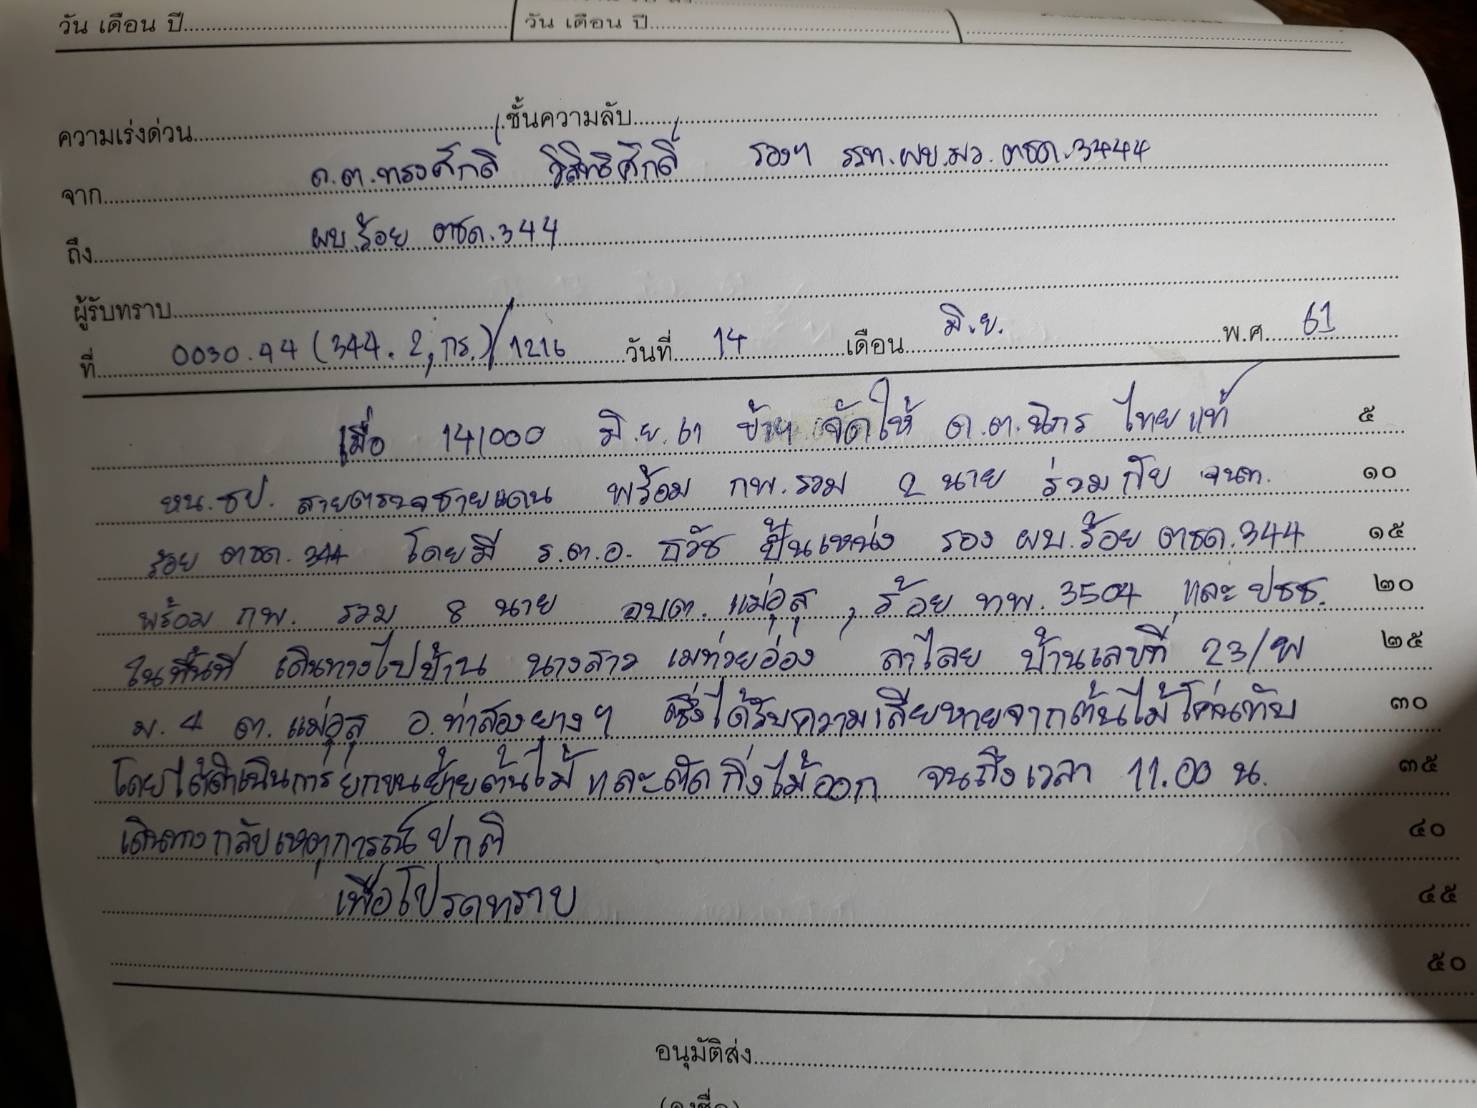 วัน เดือน ปี............ วัน เดือน ปี............
ความเร่งด่วน............ชั้นความลับ............
จาก ด.ต.ทรงศักดิ์ วิสิทธิศักดิ์ รองฯ รรท.ผบ.มว.ตชด.3444
ถึง ผบ.ร้อย ตชด.344
ผู้รับทราบ............
ที่ 0030.44(344.2,กร.)/1216 วันที่ 14 เดือน มิ.ย. พ.ศ. 61
เมื่อ 141000 มิ.ย.61 ข้าฯ จัดให้ ด.ต.นิกร ไทยแท้ ๕
หน.ชป. สายตรวจชายแดน พร้อม กพ.รวม 2 นาย ร่วมกับ จนท. ๑๐
ร้อย ตชด.344 โดยมี ร.ต.อ. ธวัช ปั้นเหน่ง รอง ผบ.ร้อย ตชด.344 ๑๕
พร้อม กพ. รวม 8 นาย อบต. แม่อุสุ , ร้อย ทพ.3504 และ ปชช. ๒๐
ในพื้นที่ เดินทางไปบ้าน นางสาว เมท่วยอ่อง ลาไลย บ้านเลขที่ 23/พ ๒๕
ม.4 ต.แม่อุสุ อ.ท่าสองยางฯ ซึ่งได้รับความเสียหายจากต้นไม้โค่นทับ ๓๐
โดยได้ดำเนินการยกขนย้ายต้นไม้ และตัดกิ่งไม้ออก จนถึงเวลา 11.00 น. ๓๕
เดินทางกลับเหตุการณ์ปกติ ๔๐
เพื่อโปรดทราบ ๔๕
๕๐
อนุมัติส่ง............